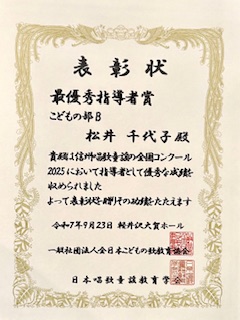 表彰状
最優秀指導者賞
こどもの部B
松井 千代子 殿
貴殿は信州唱歌童謡の全国コンクール
2025において指導者として優秀な成績を
収められました
よって表彰状を贈りその功績をたたえます
令和7年9月23日 軽井沢大賀ホール
一般社団法人全日本こどもの歌教育協会
日本唱歌童謡教育学会